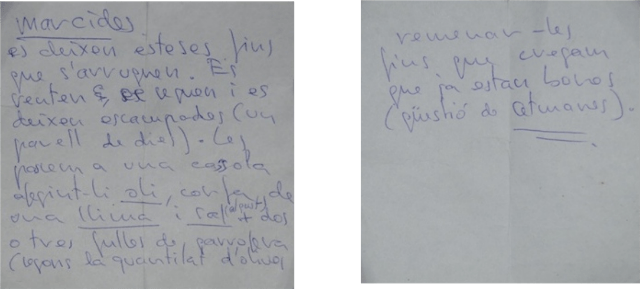 marcides.
es deixen esteses fins
que s'arruguen. Es
renten, s'eixuguen i es
deixen escampades (un
parell de dies). Les
posem a una cassola
afegint-li oli, confa, de
una llima i sal + dos
o tres fulles de garrofera
(segons la quantitat d'olives
remenar-les
fins que creguem
que ja estan bones
(qüestió de setmanes).